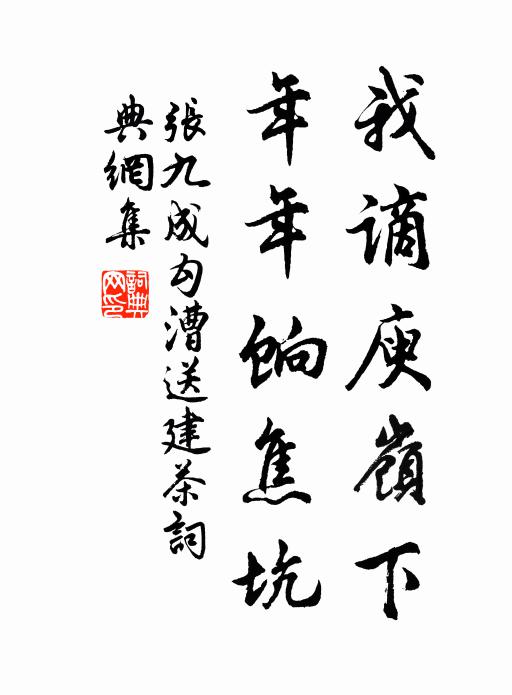 我謫庾嶺下
年年餉焦坑
張九成句漕送建茶詞
典網集
詞典網印